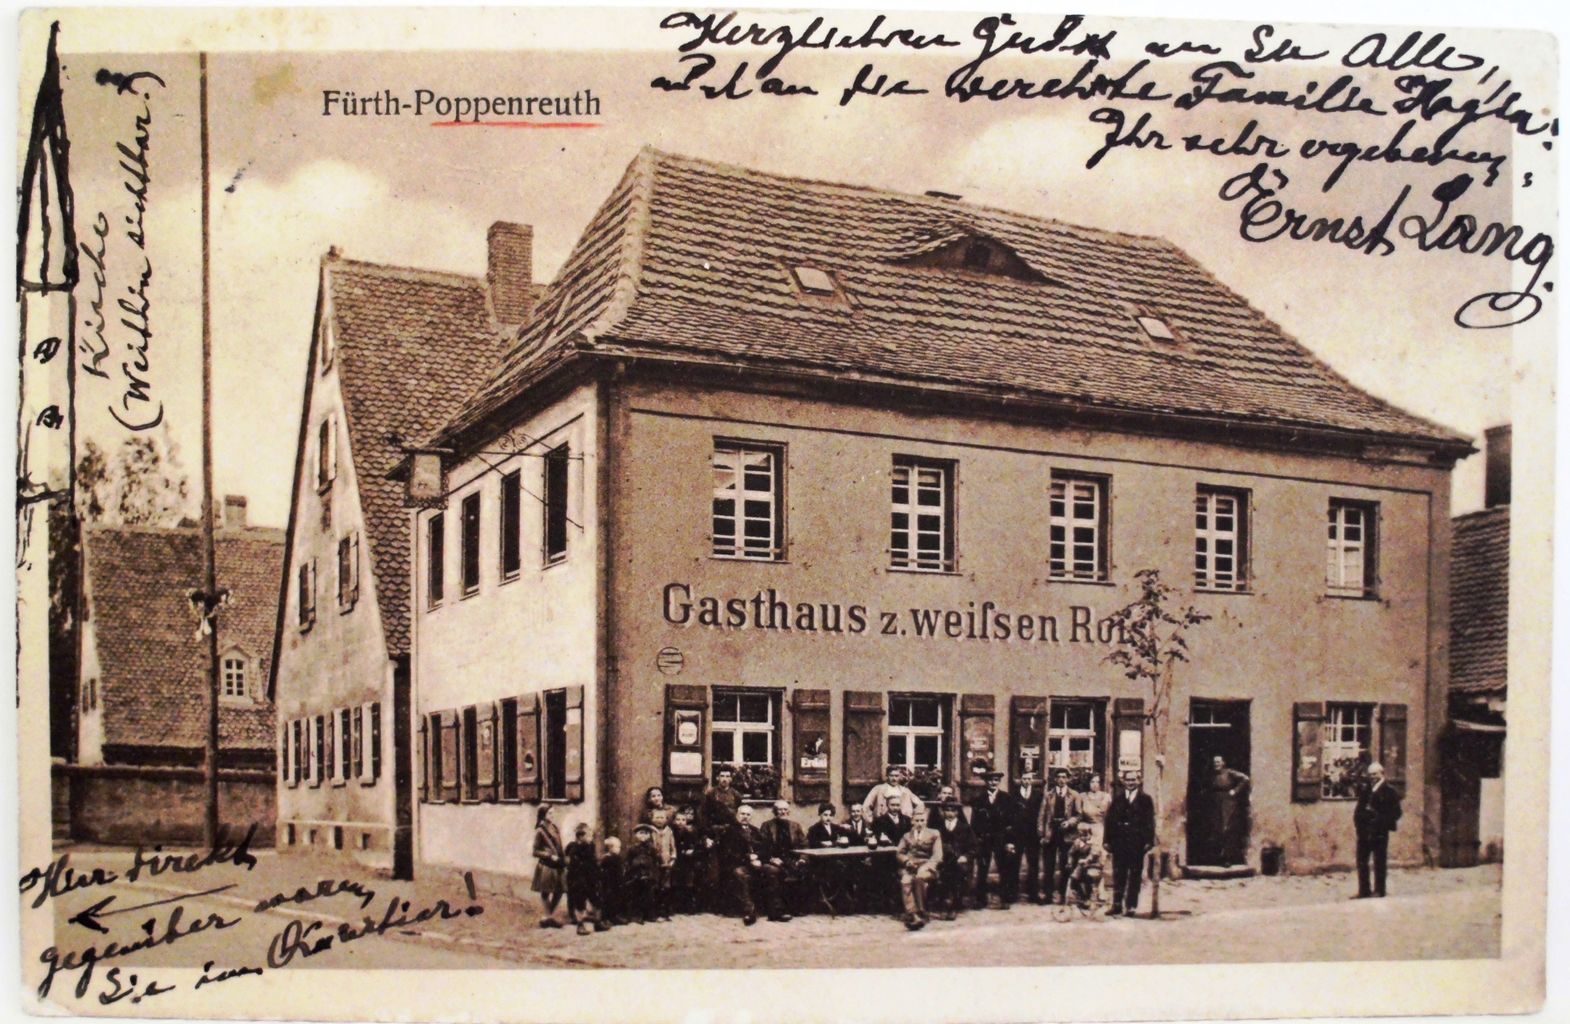 Herzlichen Gruß an Sie Alle,
und an die verehrte Familie
Ihr sehr ergebener
Ernst Lang.
Fürth-Poppenreuth
Kirche
(Weithin sichtbar.)
Gasthaus z. weiſsen Roſs
Erdal
MAGGI
Hier direkt
gegenüber waren
Sie im Quartier!